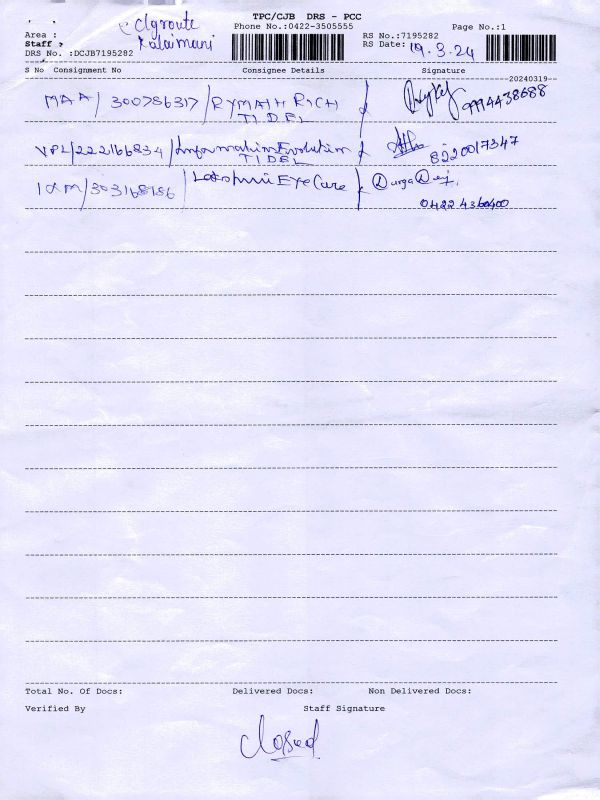 TPC/CJB DRS - PCC
Phone No.:0422-3505555
Page No.:1
Area :
Staff : Kalaimani
DRS No. :DCJB7195282
RS No.:7195282
RS Date: 19.3.24
S No Consignment No Consignee Details Signature
20240319
MAA/ 300786317 / RYMATH RICH TIDEL 9994438688
VPL/222166834 / Information Evolution TIDEL 8220017347
IXM/303168986 / Lakshmi Eye Care Durga Devi. 0422 4360400
Total No. Of Docs: Delivered Docs: Non Delivered Docs:
Verified By Staff Signature
closed